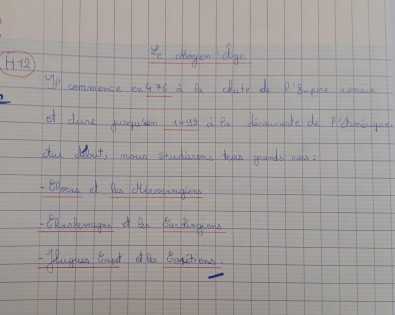 H12
Le Moyen Âge
Il commence en 476 à la chute de l'Empire romain
et dure jusqu'en 1492 à la découverte de l'Amérique.
Au début, nous étudierons trois grands rois :
- Clovis et les Mérovingiens
- Charlemagne et les Carolingiens
- Hugues Capet et les Capétiens.